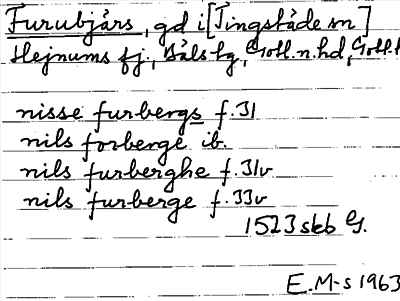 Furubjärs, gd i [Tingstäde sn]
Hejnums fj., Bäls tg, Gotl. n. hd, Gotl. l
nisse furbergs f. 31
nils forberge ib.
nils furberghe f. 31v
nils furberge f. 33v
1523 skb G.
E. M-s 1963